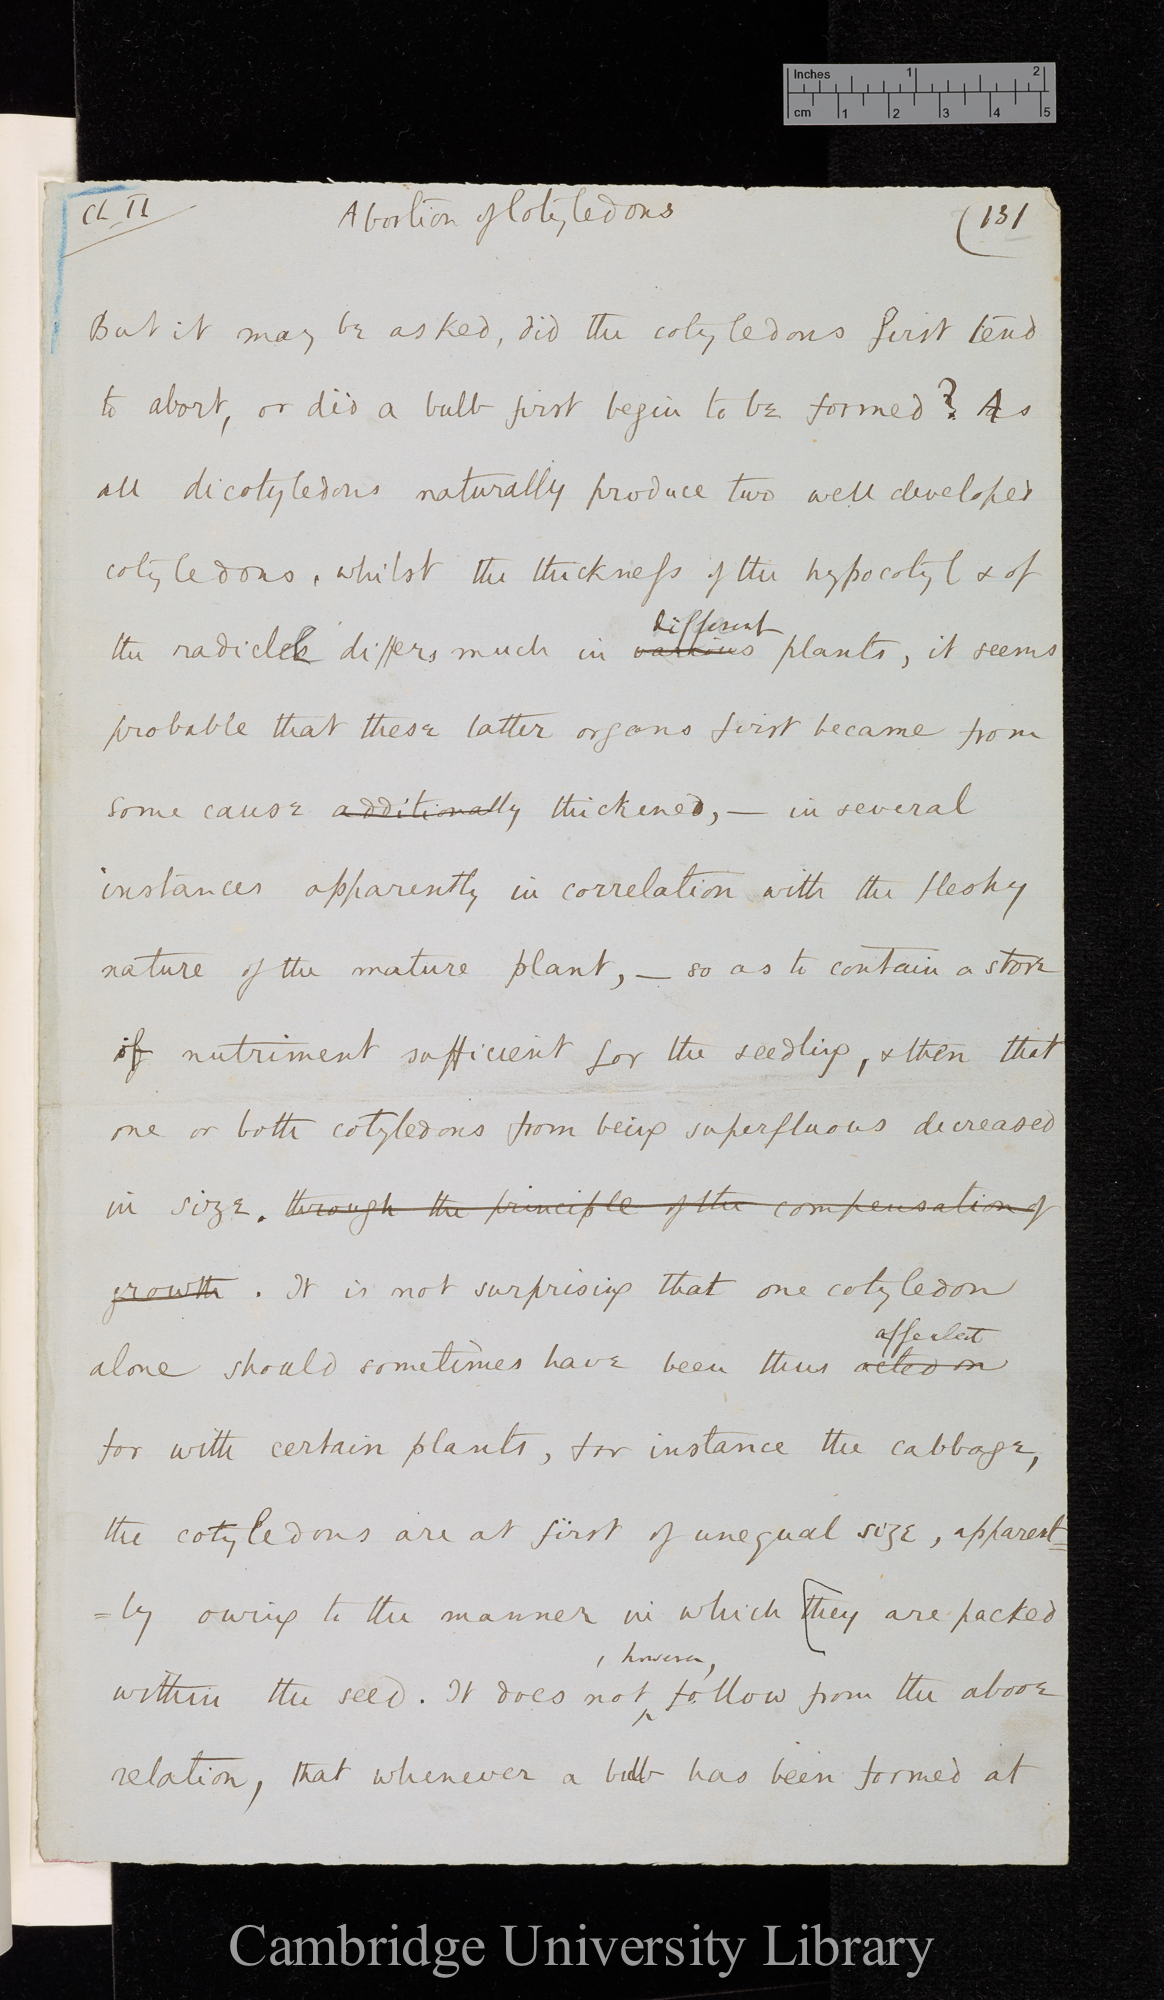 Inches 1 2
cm 1 2 3 4 5
Ch II Abortion of Cotyledons (131
But it may be asked, did the cotyledons first tend
to abort, or did a bulb first begin to be formed? As
all dicotyledons naturally produce two well developed
cotyledons, whilst the thickness of the hypocotyl & of
different
the radicle differs much in various plants, it seems
probable that these latter organs first became from
some cause additionally thickened, — in several
instances apparently in correlation with the fleshy
nature of the mature plant, — so as to contain a store
of nutriment sufficient for the seedling, & then that
one or both cotyledons from being superfluous decreased
in size. through the principle of the compensation of
growth. It is not surprising that one cotyledon
affected
alone should sometimes have been thus acted on
for with certain plants, for instance the cabbage,
the cotyledons are at first of unequal size, apparent=
=ly owing to the manner in which [they are packed
, however,
within the seed. It does not follow from the above
relation, that whenever a bulb has been formed at
Cambridge University Library